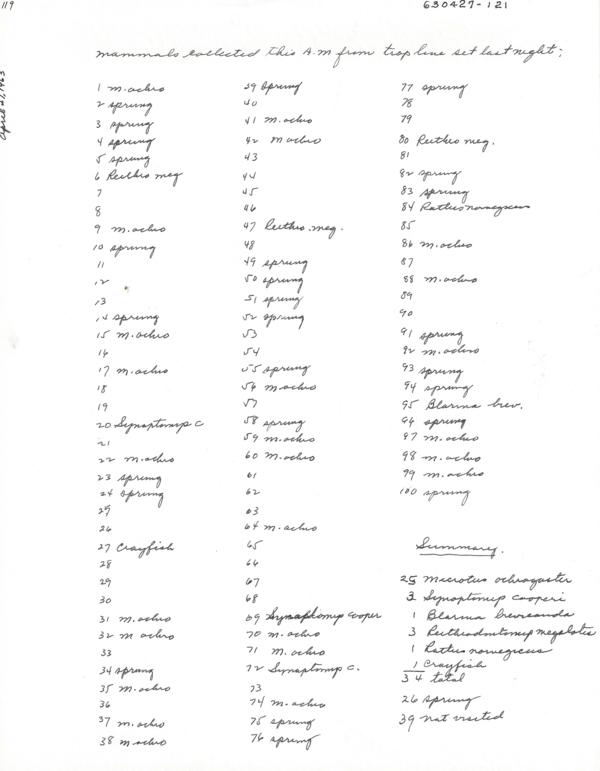 119
630427-121
April 27, 1963
mammals collected this A.M from trap line set last night;
1 m. ochro
2 sprung
3 sprung
4 sprung
5 sprung
6 Reithro meg
7
8
9 m. ochro
10 sprung
11
12
13
14 sprung
15 m. ochro
16
17 m. ochro
18
19
20 Synaptomys c
21
22 m. ochro
23 sprung
24 sprung
25
26
27 Crayfish
28
29
30
31 m. ochro
32 m. ochro
33
34 sprung
35 m. ochro
36
37 m. ochro
38 m ochro
39 sprung
40
41 m. ochro
42 m ochro
43
44
45
46
47 Reithro. meg.
48
49 sprung
50 sprung
51 sprung
52 sprung
53
54
55 sprung
56 m. ochro
57
58 sprung
59 m. ochro
60 m. ochro
61
62
63
64 m. ochro
65
66
67
68
69 Synaptomys cooper
70 m. ochro
71 m. ochro
72 Synaptomys c.
73
74 m. ochro
75 sprung
76 sprung
77 sprung
78
79
80 Reithro meg.
81
82 sprung
83 sprung
84 Rattus norvegicus
85
86 m. ochro
87
88 m. ochro
89
90
91 sprung
92 m. ochro
93 sprung
94 sprung
95 Blarina brev.
96 sprung
97 m. ochro
98 m. ochro
99 m. ochro
100 sprung
Summary.
25 Microtus ochrogaster
3 Synaptomys cooperi
1 Blarina brevicauda
3 Reithrodontomys megalotis
1 Rattus norvegicus
1 Crayfish
34 total
26 sprung
39 not visited